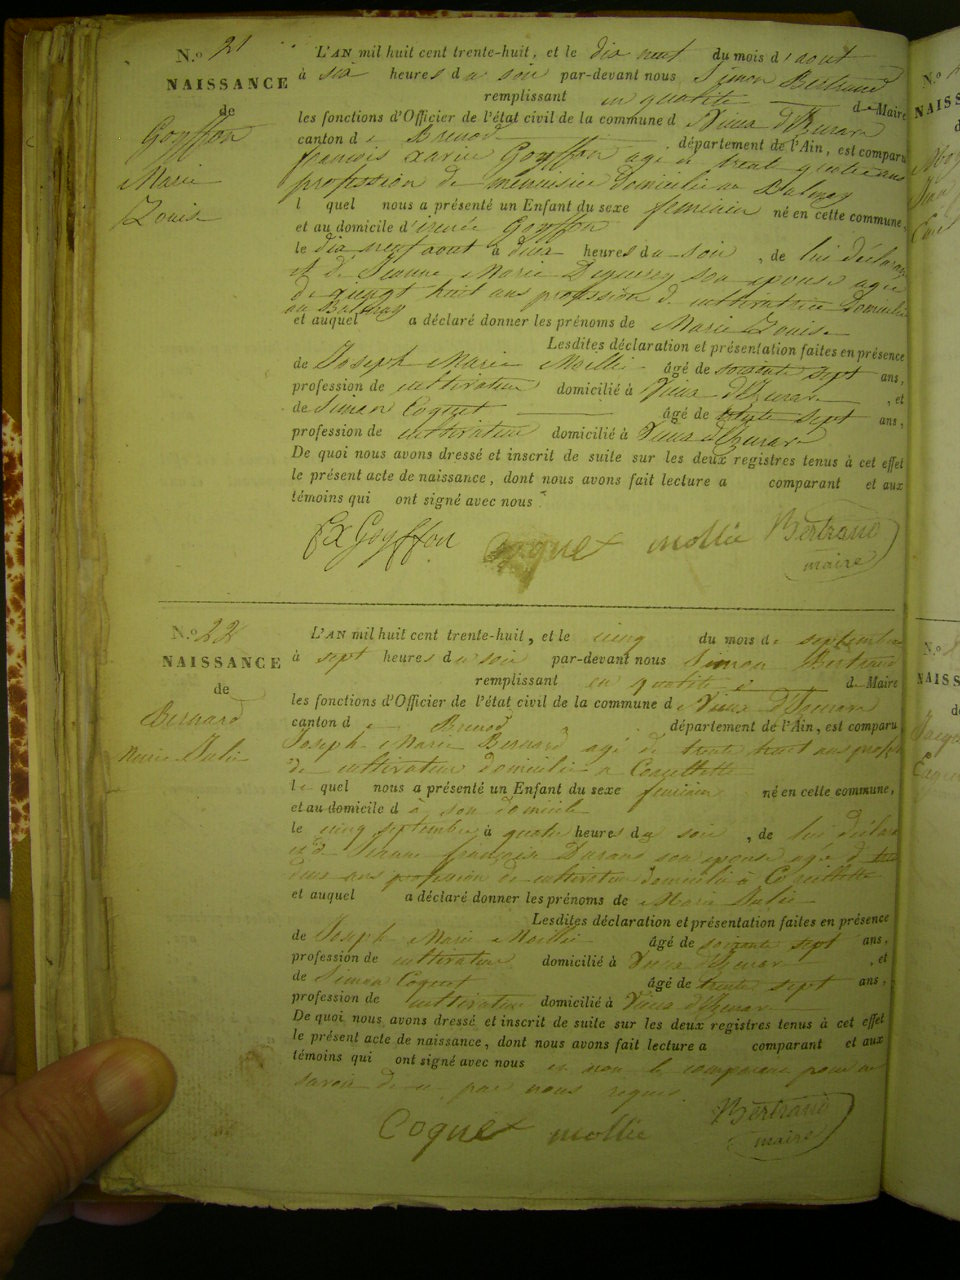 N.o 21
NAISSANCE
de
Goyffon
Marie
Louise
L'AN mil huit cent trente-huit, et le dix neuf du mois d'aout
à six heures du soir par-devant nous Simon Bertrand
remplissant en qualité de Maire
les fonctions d'Officier de l'état civil de la commune de Vieux d'Izenave
canton de Brenod département de l'Ain, est comparu
francois xavier Goyffon agé de trente quatre ans
profession de menuisier domicilié au Balmay
lequel nous a présenté un Enfant du sexe feminin né en cette commune,
et au domicile d'irénée Goyffon
le dix neuf aout à deux heures du soir, de lui déclarant
et de Jeanne Marie son epouse agée
de vingt huit ans profession de cultivatrice domiciliée
au Balmay
et auquel a déclaré donner les prénoms de Marie Louise
Lesdites déclaration et présentation faites en présence
de Joseph Marie Mollie âgé de soixante sept ans,
profession de cultivateur domicilié à Vieux d'Izenave, et
de Simon Coquet âgé de trente sept ans,
profession de cultivateur domicilié à Vieux d'Izenave
De quoi nous avons dressé et inscrit de suite sur les deux registres tenus à cet effet
le présent acte de naissance, dont nous avons fait lecture a comparant et aux
témoins qui ont signé avec nous
fx Goyffon Coquet mollie Bertrand
maire
N.o 22
NAISSANCE
de
Bernard
Marie Julie
L'AN mil huit cent trente-huit, et le cinq du mois de septembre
à sept heures du soir par-devant nous Simon Bertrand
remplissant en qualité de Maire
les fonctions d'Officier de l'état civil de la commune de Vieux d'Izenave
canton de Brenod département de l'Ain, est comparu
Joseph Marie Bernard agé de trente huit ans profession
de cultivateur domicilié a
le quel nous a présenté un Enfant du sexe feminin né en cette commune,
et au domicile d à son domicile
le cinq septembre à quatre heures du soir, de lui déclarant
et de Jeanne françoise son epouse agé d
deux ans profession de cultivateur domicilié à
et auquel a déclaré donner les prénoms de Marie Julie
Lesdites déclaration et présentation faites en présence
de Joseph Marie Mollie âgé de soixante sept ans,
profession de cultivateur domicilié à Vieux d'Izenave, et
de Simon Coquet âgé de trente sept ans,
profession de cultivateur domicilié à Vieux d'Izenave
De quoi nous avons dressé et inscrit de suite sur les deux registres tenus à cet effet
le présent acte de naissance, dont nous avons fait lecture a comparant et aux
témoins qui ont signé avec nous et non le comparant pour ne
savoir de ce par nous requis
Coquet mollie Bertrand
maire